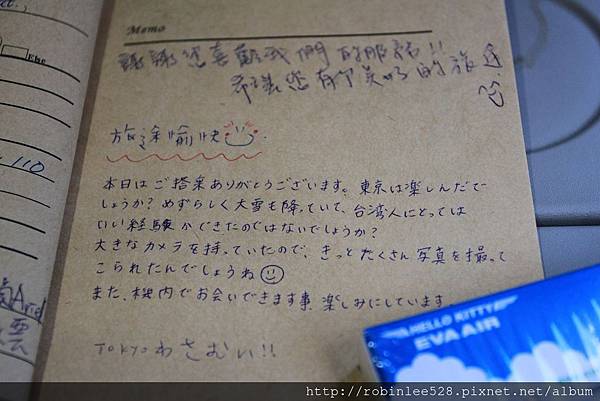 Memo
謝謝您喜歡我們的服務!!
希望您有個美好的旅途
旅途愉快
本日はご搭乗ありがとうございます。東京は楽しんだで
しょうか?めずらしく大雪も降っていて、台湾人にとっては
いい経験ができたのではないでしょうか?
大きなカメラを持っていたので、きっとたくさん写真を撮って
こられたんでしょうね
また、機内でお会いできます事、楽しみにしています。
TOKYO わさむい!!
110
HELLO KITTY
EVA AIR
http://robinlee528.pixnet.net/album